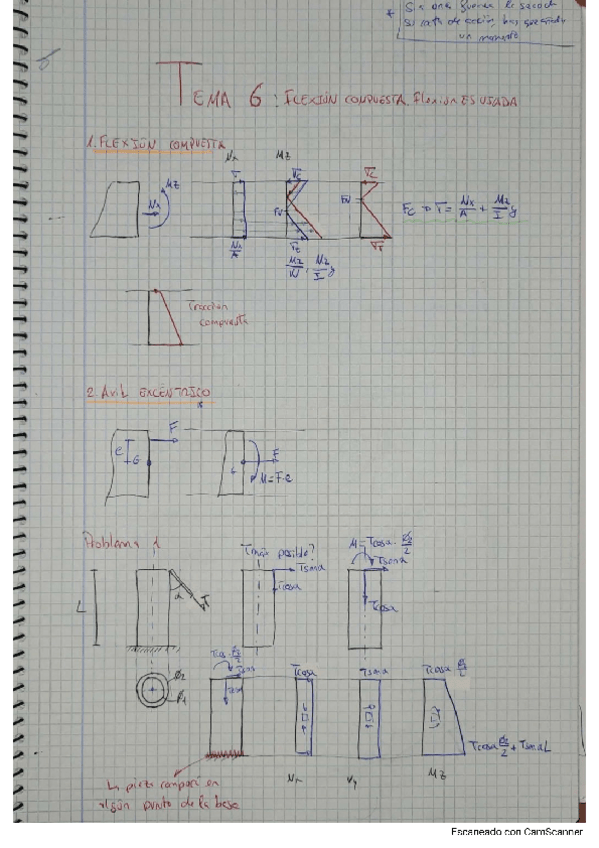 * Si a una fuerza le sacas de
su recta de acción,
un momento
TEMA 6: FLEXIÓN COMPUESTA. Flexión ESVIADA
1. FLEXIÓN COMPUESTA
Nx
Mz
Mz
Nx
FN
FN
Nx/A
Mz/W, Mz/I y
FC → σ = Nx/A + Mz/I y
Tracción
compuesta
2. Axil EXCÉNTRICO
*
F
e
G
G
F
M=F·e
Problema 1
Tmáx posible?
M=Tcosα·φ2/2
Tsinα
Tcosα
Tsinα
Tcosα
L
α
T
φ2
φ1
Tcosα·φ2/2
Tcosα
Tsinα
Tcosα φ2/2
Tcosα φ2/2 + TsinαL
Nx
Vy
Mz
La pieza romperá en
algún punto de la base
Escaneado con CamScanner